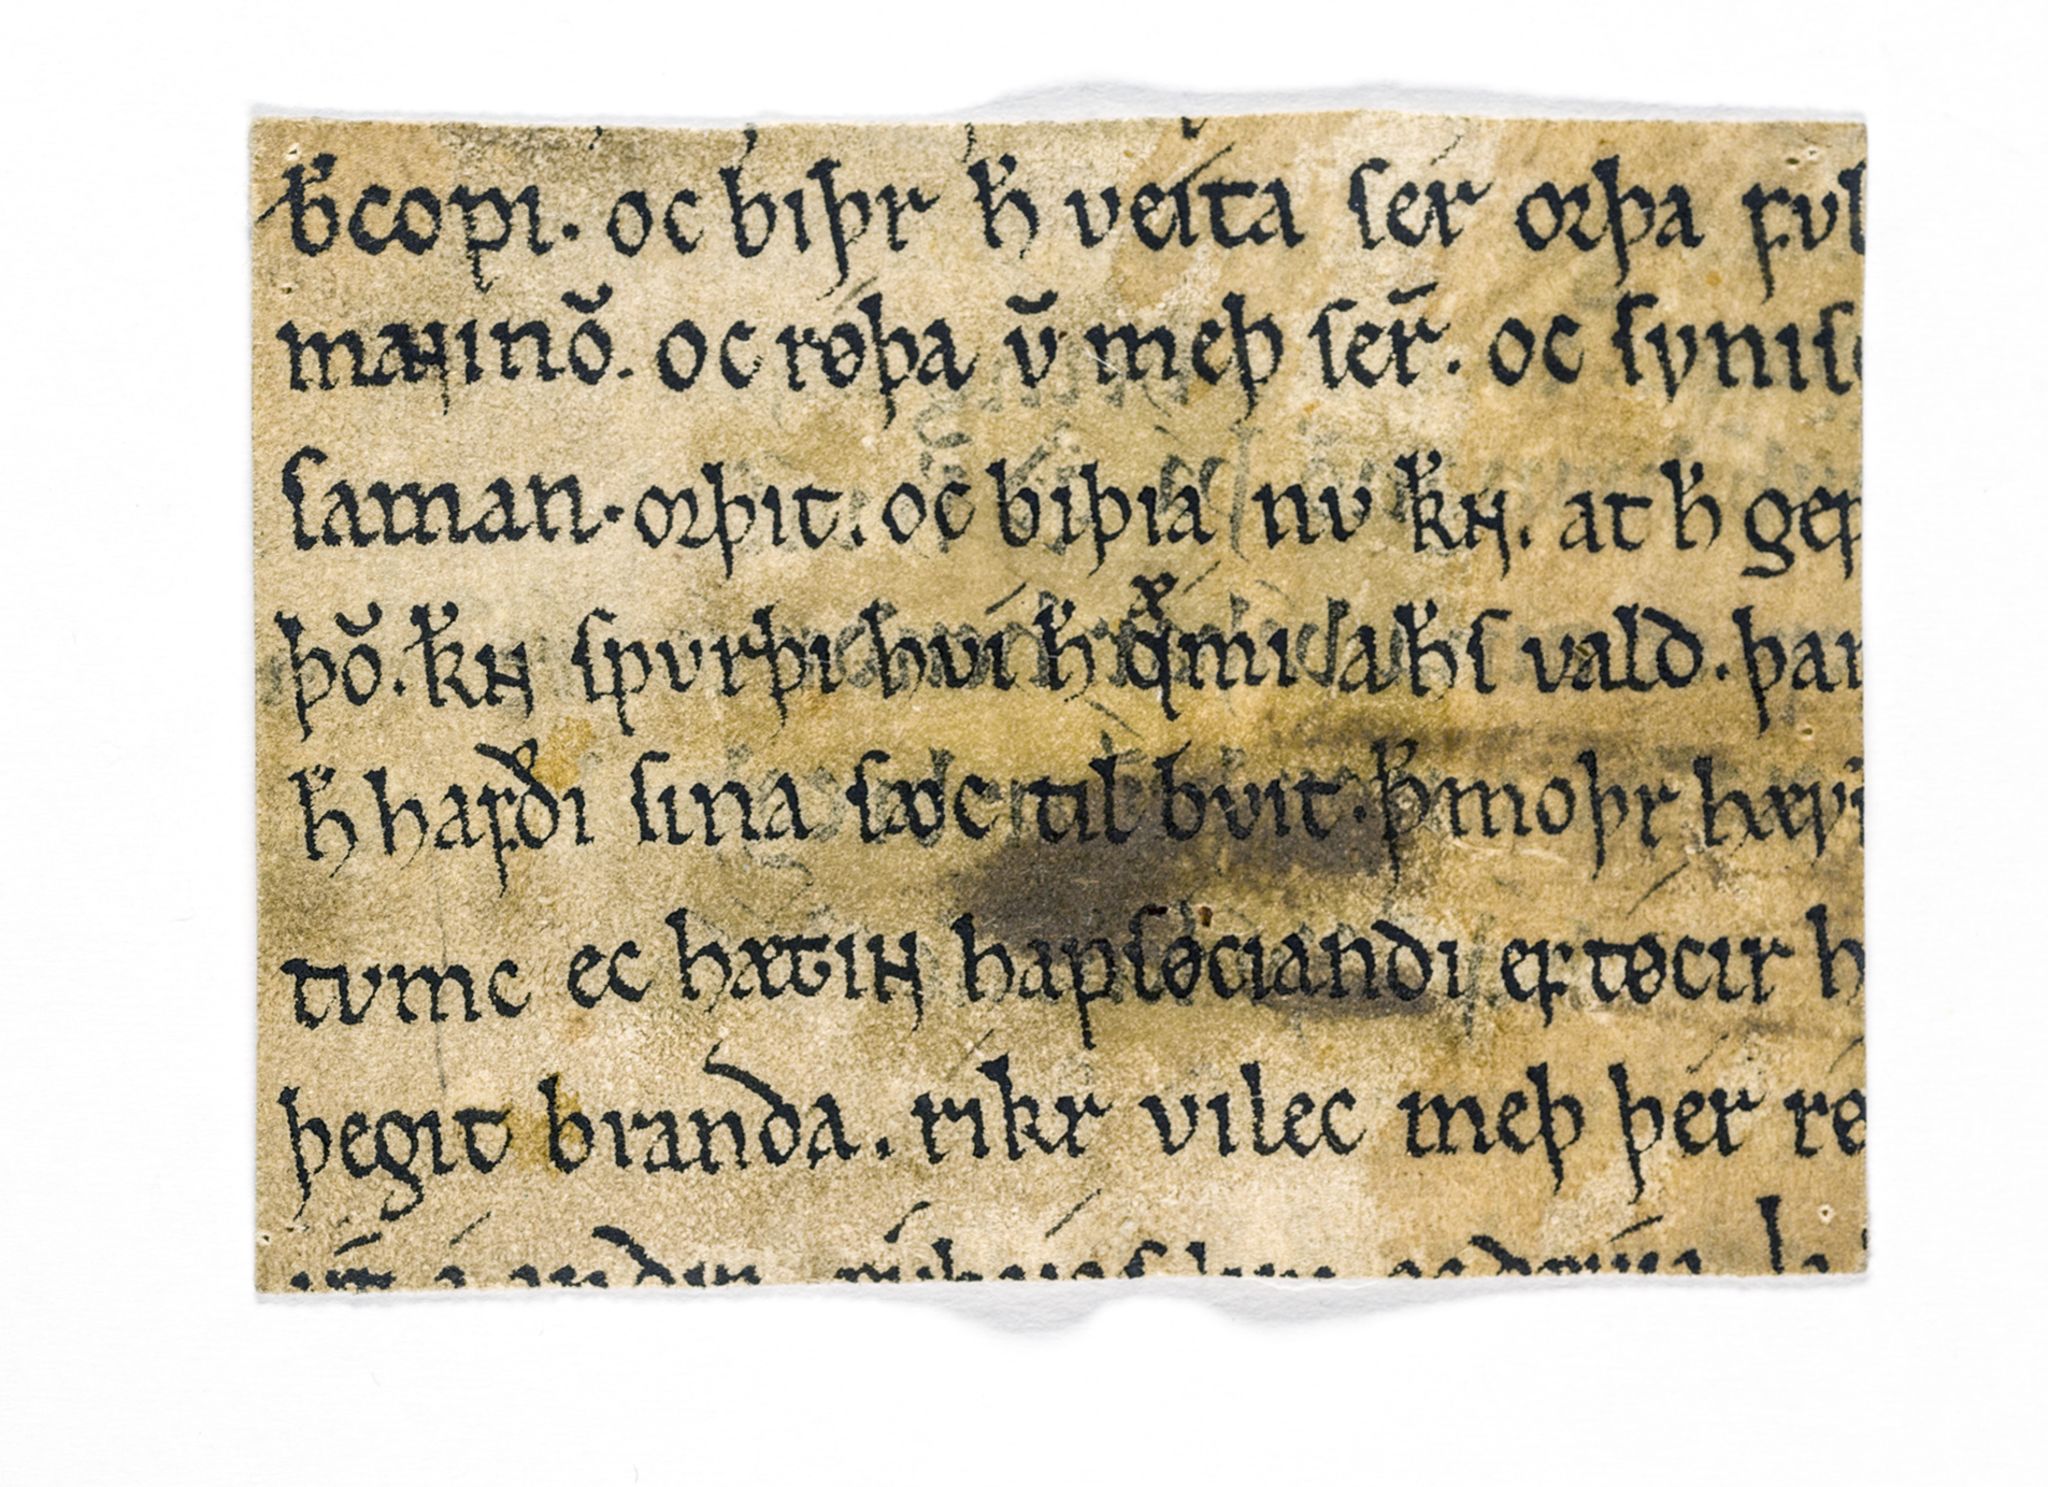 b̅copi. oc biþr h̅ veíta ſér orþa ful
maɴinō. oc rǿþa v̄ meþ ſer̄. oc ſyniſc
ſaman. orþit. oc biþia nv k̅ɴ. at h̅ gef
þō. k̅ɴ ſpvrþi hví h̅ qͯmi a h̅ſ vald. þar
h̅ hafði ſina ſøc til bvit. þ̅ moþr hæv
tvmc ec hætiɴ hapſøciandi ef tøcir h
þegit branda. ríkr vilec meþ þér rø